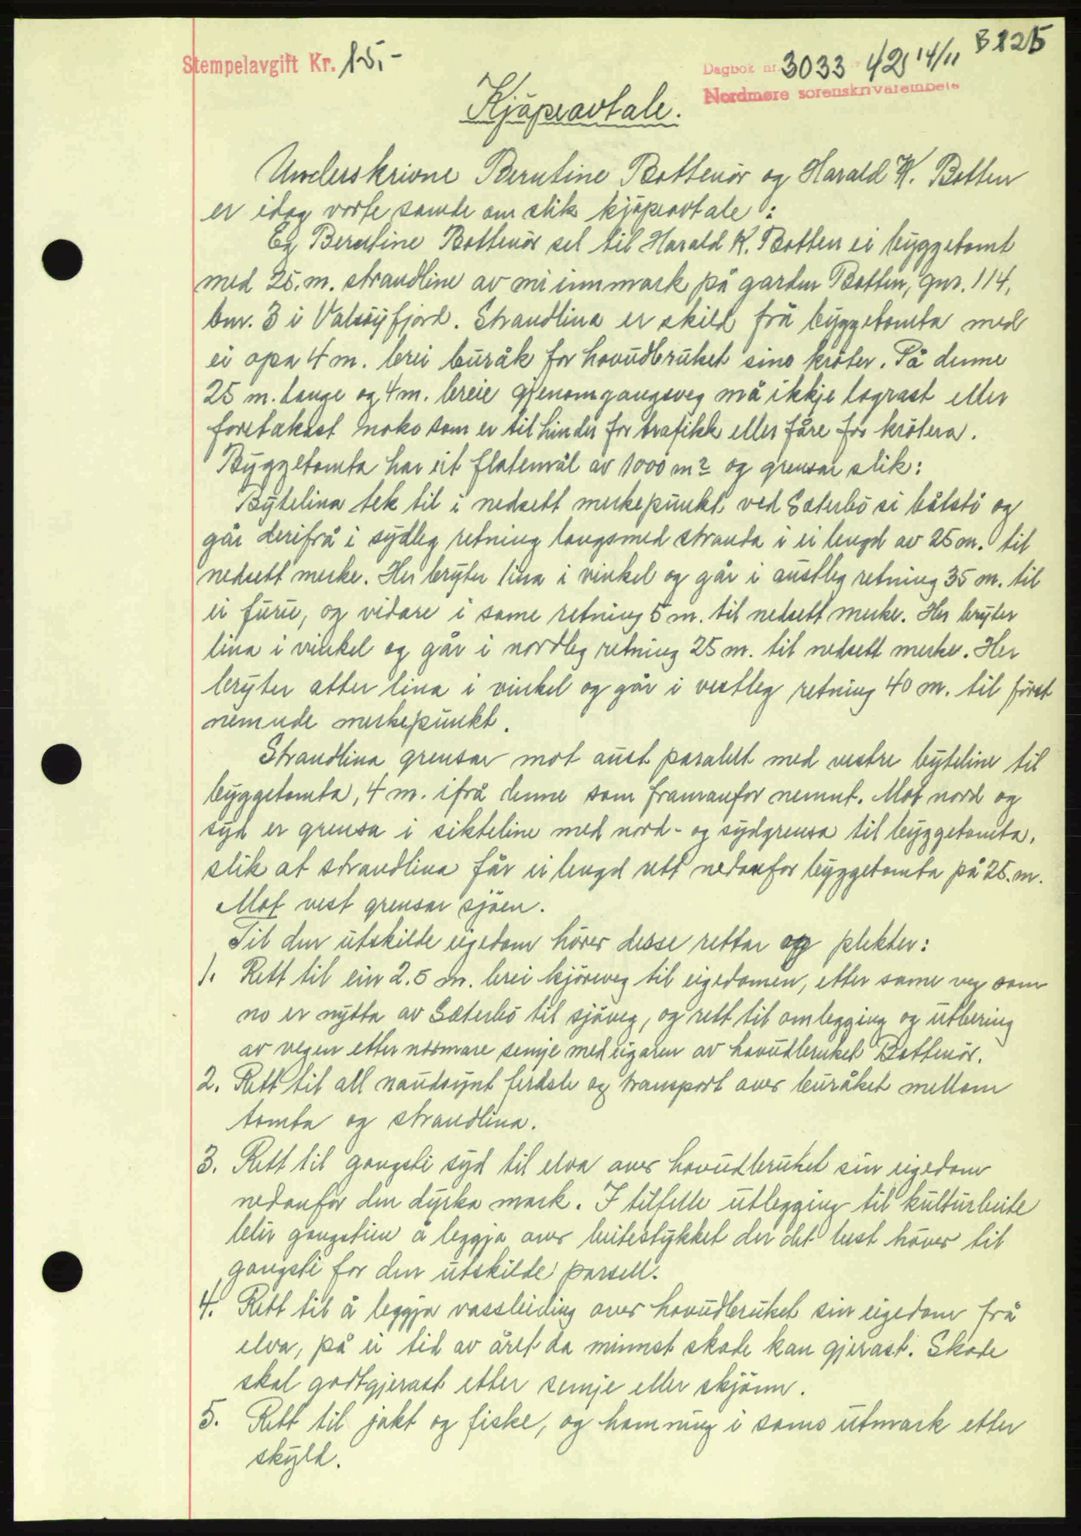 B 125
Stempelavgift Kr. 15,-
Dagbok nr. 3033 42 14/11
Nordmøre sorenskrivarembete
Kjöpeavtale.
Underskrivne Berntine Bottenör og Harald K. Botten
er idag vorte samde om slik kjöpeavtale:
Eg Berntine Bottenör sel til Harald K. Botten ei byggetomt
med 25.m. strandline av mi innmark på garden Botten, gnr. 114,
bnr. 3 i Valsöyfjord. Strandlina er skild frå byggetomta med
ei opa 4 m. brei buråk for hovudbruket sine kröter. På denne
25 m. lange og 4 m. breie gjenomgangsveg må ikkje lagrast eller
foretakast noko som er til hinder for trafikk eller fåre for krötera.
Byggetomta har eit flatemål av 1000 m² og grensar slik:
Bytelina tek til i nedsett merkepunkt ved Sæterbö si båtstö og
går derifrå i sydleg retning langsmed stranda i ei lengd av 25 m. til
nedsett merke. Her bryter lina i vinkel og går i austleg retning 35 m. til
ei furu, og vidare i same retning 5 m. til nedsett merke. Her bryter
lina i vinkel og går i nordleg retning 25 m. til nedsett merke. Her
bryter atter lina i vinkel og går i vestleg retning 40 m. til först
nemnde merkepunkt.
Strandlina grensar mot aust paralelt med vestre byteline til
byggetomta, 4 m. ifrå denne som framanfor nemnt. Mot nord og
syd er grensa i sikteline med nord- og sydgrensa til byggetomta,
slik at strandlina får ei lengd rett nedanfor byggetomta på 25.m.
Mot vest grensar sjöen.
Til den utskilde eigedom hörer desse rettar og plikter:
1. Rett til ein 2.5 m. brei kjöreveg til eigedomen, etter same veg som
no er nytta av Sæterbö til sjöveg, og rett til omlegging og utbering
av vegen etter nærmare semje med eigaren av hovudbruket Bottenör.
2. Rett til all naudsynt ferdsle og transport over buråket mellom
tomta og strandlina.
3. Rett til gangsti syd til elva over hovudbruket sin eigedom
nedanfor den dyrka mark. I tilfelle utlegging til kulturbeite
blir gangstien å leggja over beitestykket der det best höver til
gangsti for den utskilde parsell.
4. Rett til å leggja vassleiding over hovudbruket sin eigedom frå
elva, på ei tid av året da minnst skade kan gjerast. Skade
skal godtgjerast etter semje eller skjönn.
5. Rett til jakt og fiske, og hamning i sams utmark etter
skyld.